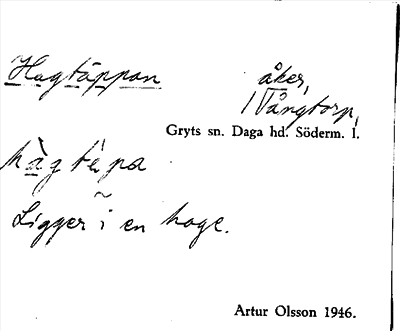 Hagtäppan åker,
1 Vångtorp,
Gryts sn. Daga hd. Söderm. l.
hàgtèpa
Ligger i en hage.
Artur Olsson 1946.